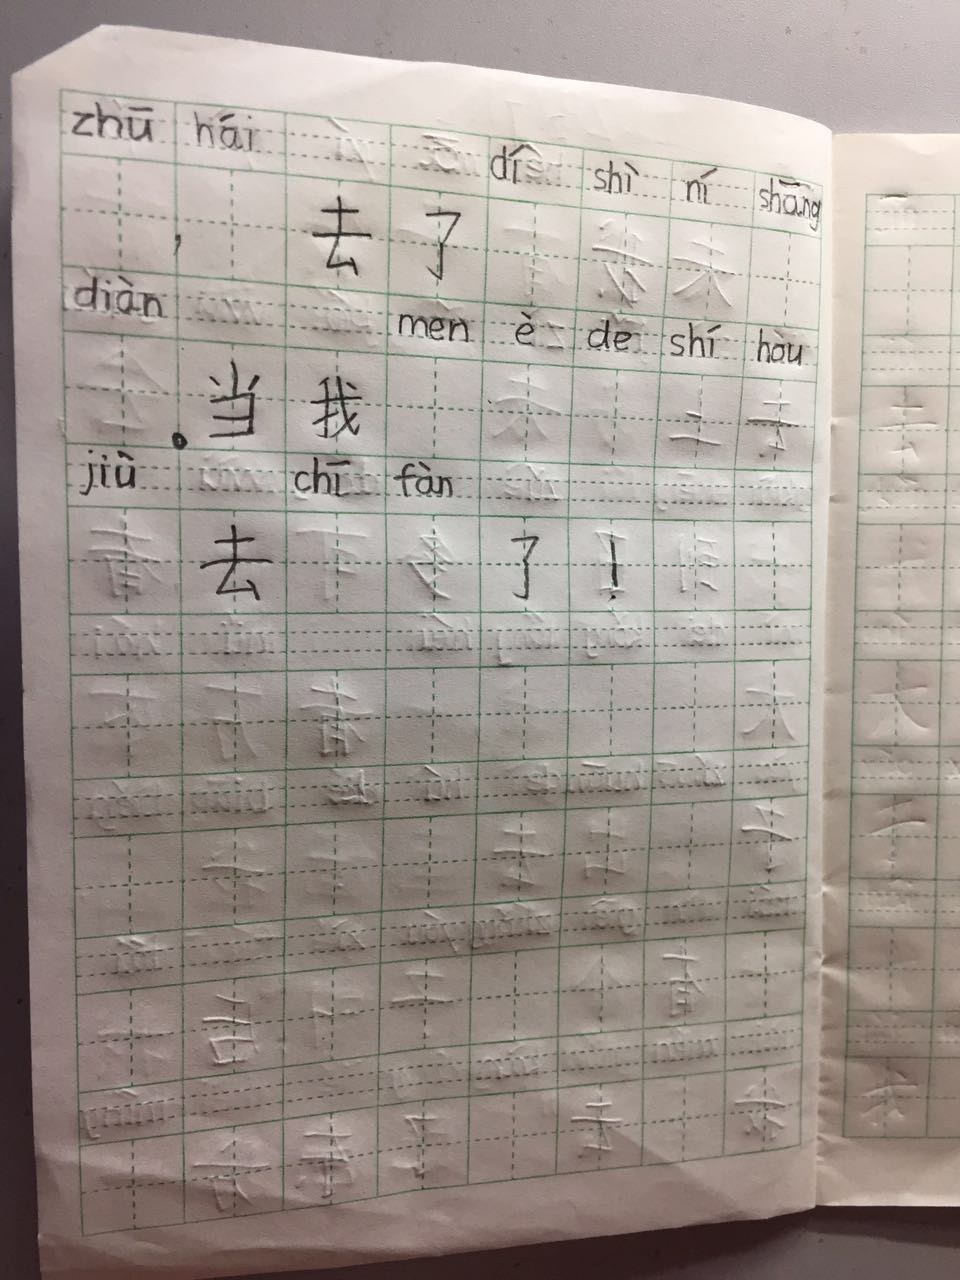 zhū hái dí shì ní shāng
， 去 了
diàn men è de shí hòu
。 当 我
jiù chī fàn
去 了 ！